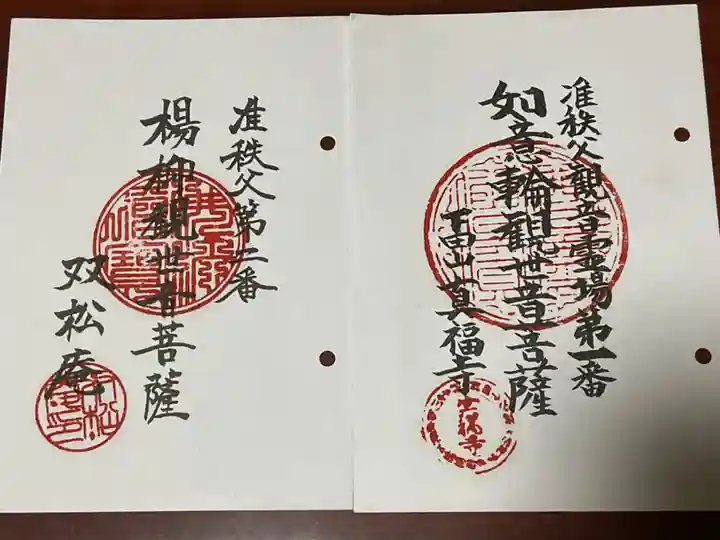 准秩父観音霊場第一番
如意輪観世音菩薩
真福寺
准秩父第二番
楊柳観世音菩薩
双松庵